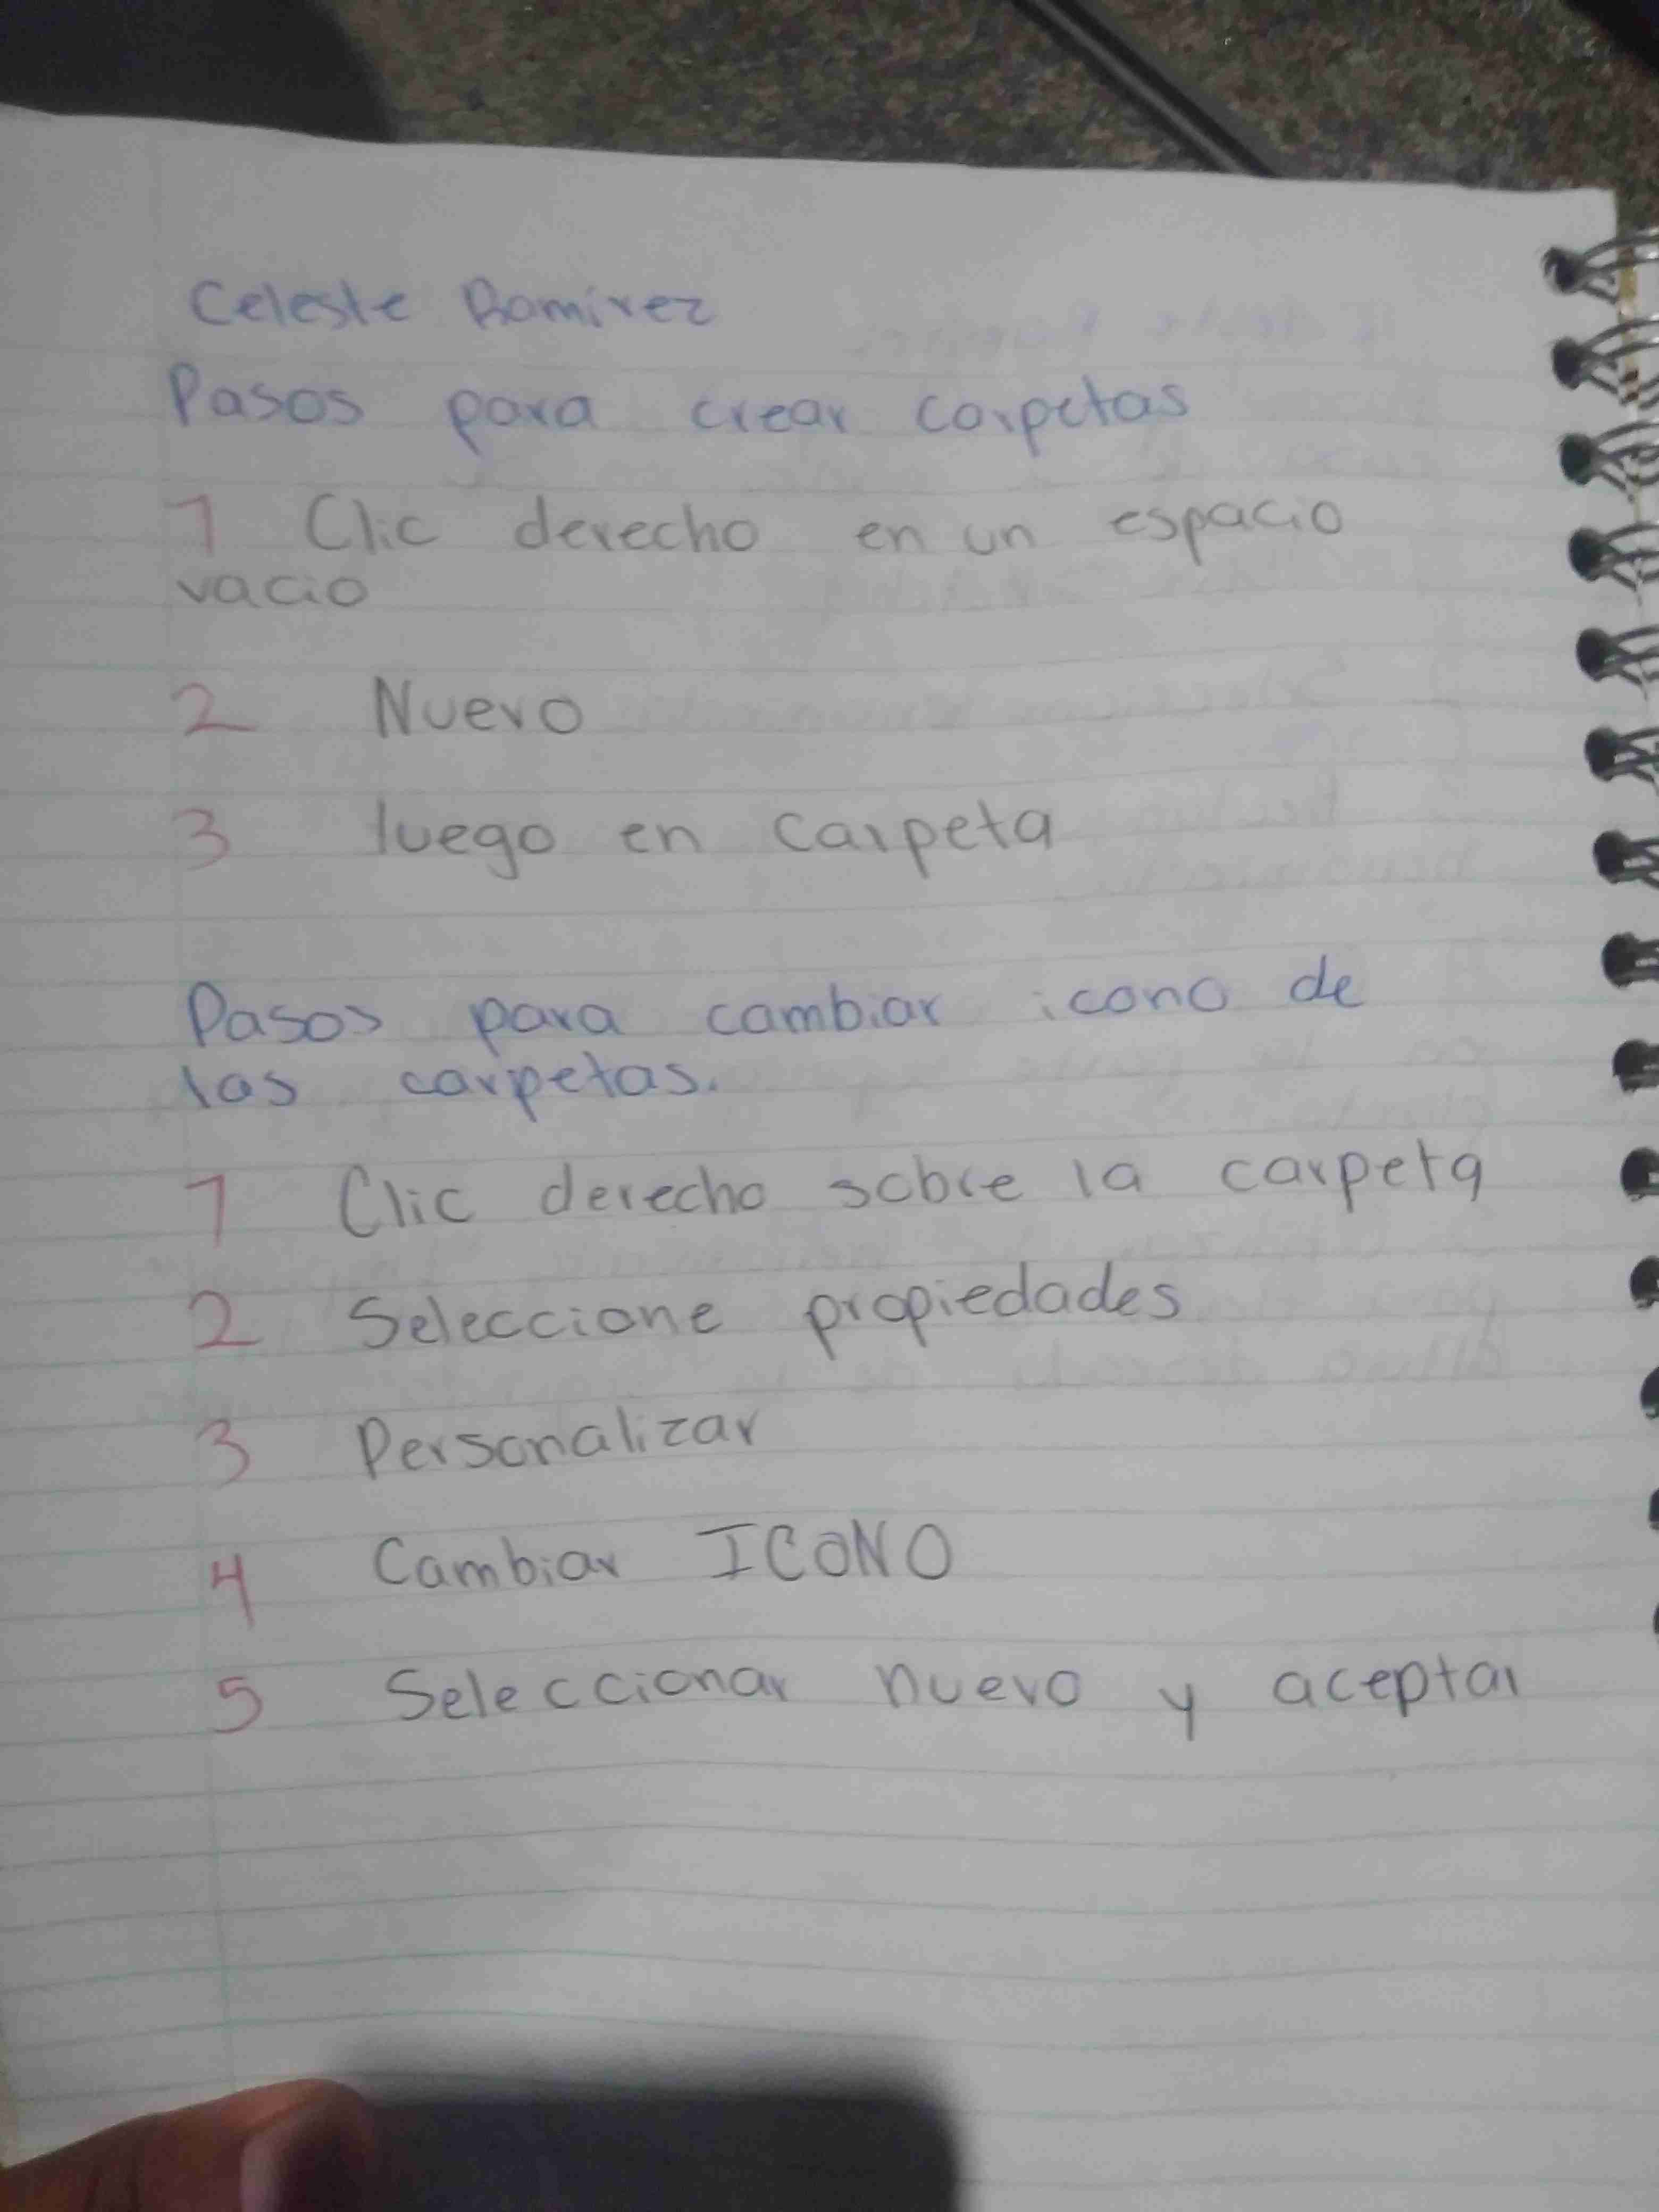 Celeste Ramirez
Pasos para crear carpetas
1 Clic derecho en un espacio
vacio
2 Nuevo
3 luego en carpeta
Pasos para cambiar icono de
las carpetas.
1 Clic derecho sobre la carpeta
2 Seleccione propiedades
3 Personalizar
4 Cambiar ICONO
5 Seleccionar nuevo y aceptar